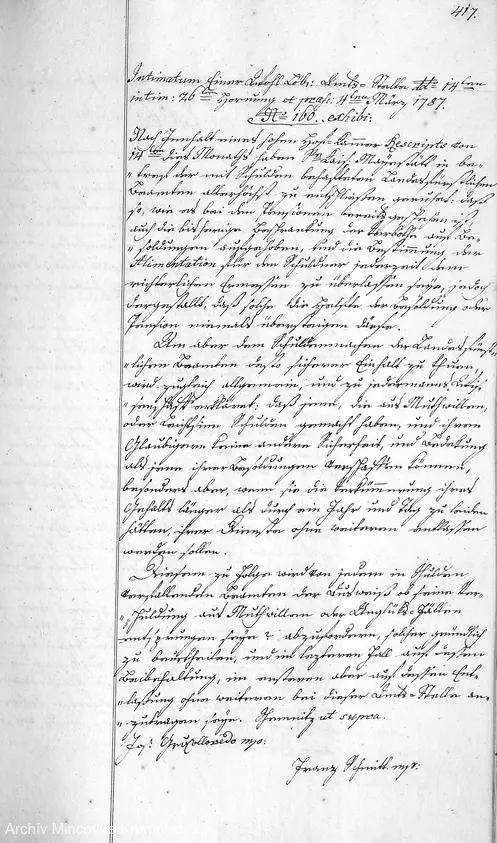 417.
Intimatum Einer Wohl Löb: Amts-Stelle dto 14ten
intim: 26ten Hornung et präs: 4ten März 1787.
No 160. exhibi:
Nach Innhalt eines hohen Hof-Kammer Rescripts von
14ten dies Monaths haben Se Kais. Mayestätt in be-
"treff der mit Schulden behafteten Landesfürstlichen
Beamten allerhöchst zu entschliessen geruhet: daß
so, wie es bei den Pensionen bereits geschehen ist,
auch die bisherige Beschrankung der Verbothe auf Be-
"soldungen aufgehoben, und die Bestimmung der
Alimentation für den Schuldner jederzeit dem
richterlichen Ermessen zu überlassen seye, jedoch
dergestallt, daß solche die Helfte der Besoldung oder
Pension niemals übersteigen dürfe.
Um aber dem Schuldenmachen der Landesfürst-
"lichen Beamten desto sicherer Einhalt zu thuen,
wird zugleich allgemein, und zu jedermanns Wis-
"senschaft erkläret, daß jene, die aus Muthwillen,
oder Leichtsinn Schulden gemacht haben, und ihren
Glaubigern keine andere Sicherheit, und Bedekung
als jene ihrer Besoldungen verschaffen können,
besonders aber, wenn sie die Verkümmerung ihres
Gehalts länger als durch ein Jahr und Tag zu leiden
hätten, ihrer Dienste ohne weiteren entlassen
werden sollen.
Diesem zu Folge wird von jedem in Schulden
verfallenden Beamten der Ausweiß ob seine Ver-
"schuldung aus Muthwillen oder Unglüks-Fällen
entsprungen seye? abzufordern, solcher gründlich
zu beurtheilen, und im lezteren Fall auf dessen
Beibehaltung, im ersteren aber auf dessen Ent-
"lassung ohne weiteren bei dieser Amts-Stelle an-
"zutragen seye. Chemnitz ut supra.
Colloredo mp:
Franz Schmitt mp:
Archiv Mincovne Kremnica